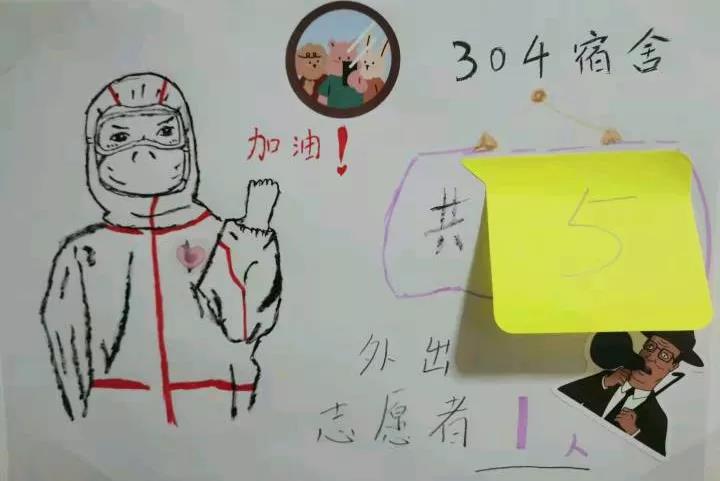 304宿舍
加油！
共 5
外出
志愿者1人